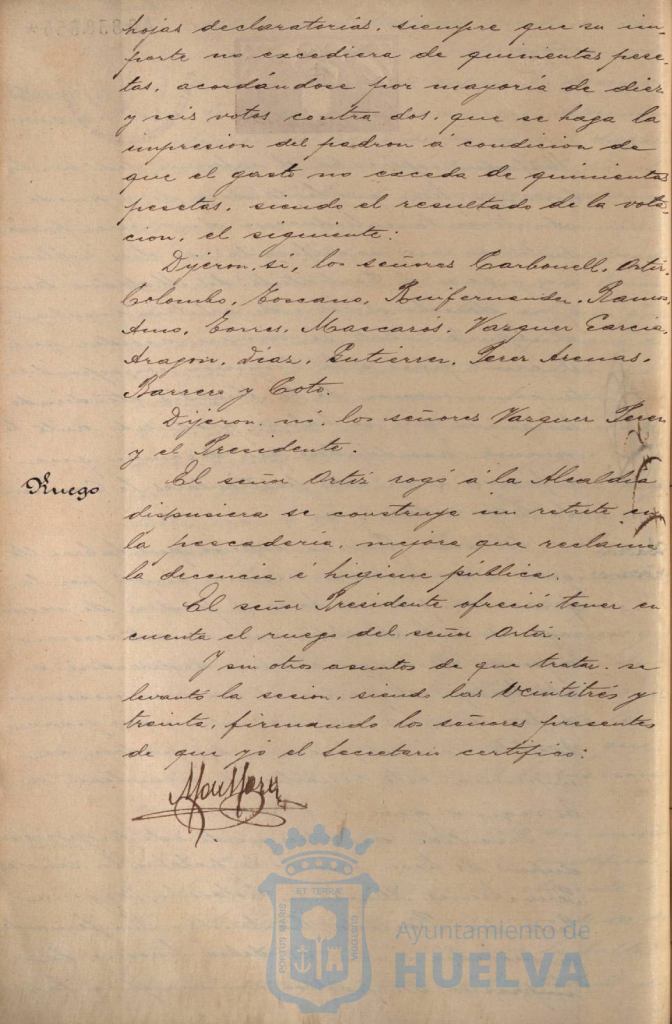 hojas declaratorias, siempre que su im-
porte no excediera de quinientas pese-
tas, acordándose por mayoría de diez
y seis votos contra dos, que se haga la
impresion del padron á condicion de
que el gasto no exceda de quinientas
pesetas, siendo el resultado de la vota-
cion, el siguiente:
Dijeron, sí, los señores Carbonell, Ortiz,
Colombo, Toscano, Ruifernandez, Ramos,
Amo, Torres, Mascarós, Vazquez Garcia,
Aragón, Díaz, Gutierrez, Perez Arenas,
Barrero y Coto.
Dijeron, nó, los señores Vazquez Perez
y el Presidente.
Ruego
El señor Ortiz rogó á la Alcaldía
dispusiera se construya un retrete en
la pescadería, mejora que reclama
la decencia é higiene pública.
El señor Presidente ofreció tener en
cuenta el ruego del señor Ortiz.
Y sin otros asuntos de que tratar, se
levantó la sesion, siendo las veintitrés y
treinta, firmando los señores presentes
de que yó el Secretario certifico:
ET TERRÆ
PORTUS MARIS
CUSTODIA
Ayuntamiento de
HUELVA